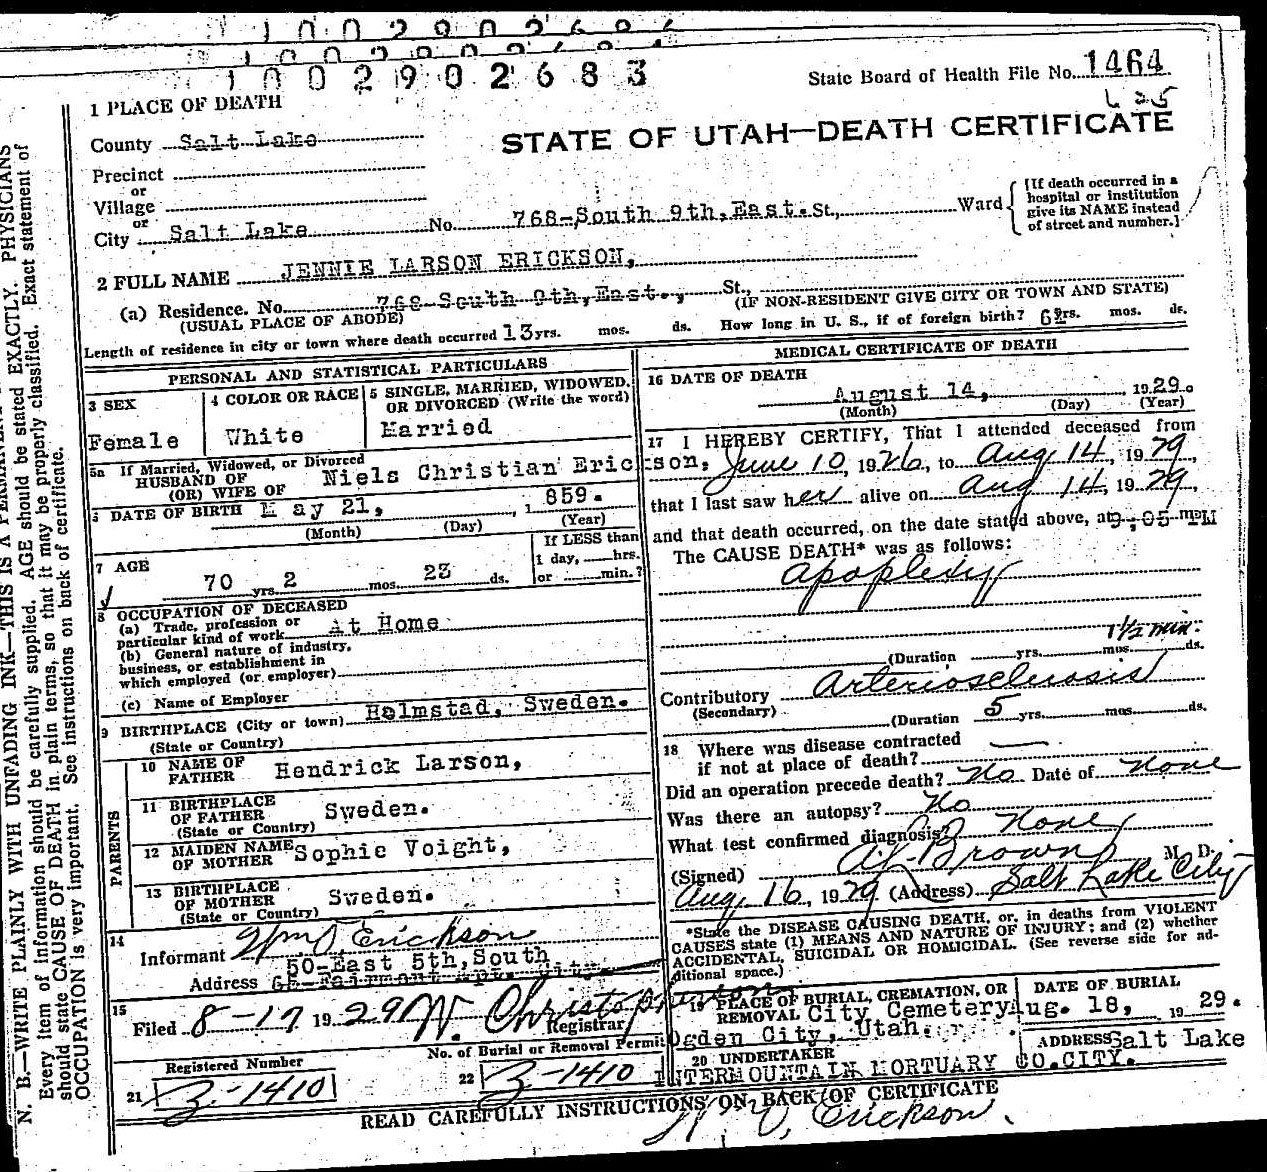 1002902684
1002902684
1002902683
State Board of Health File No. 1464
1 PLACE OF DEATH
STATE OF UTAH—DEATH CERTIFICATE
County Salt Lake
Precinct
or
Village
or
City Salt Lake No. 768-South 9th, East. St., Ward
[If death occurred in a
hospital or institution
give its NAME instead
of street and number.]
2 FULL NAME JENNIE LARSON ERICKSON,
(a) Residence. No. 768-South 9th, East., St.,
(USUAL PLACE OF ABODE) (IF NON-RESIDENT GIVE CITY OR TOWN AND STATE)
Length of residence in city or town where death occurred 13 yrs. mos. ds. How long in U. S., if of foreign birth? yrs. mos. ds.
PERSONAL AND STATISTICAL PARTICULARS
3 SEX
Female
4 COLOR OR RACE
White
5 SINGLE, MARRIED, WIDOWED,
OR DIVORCED (Write the word)
Married
5a If Married, Widowed, or Divorced
HUSBAND OF
(OR) WIFE OF Niels Christian Erickson,
6 DATE OF BIRTH May 21, 1859.
(Month) (Day) (Year)
7 AGE
70 yrs. 2 mos. 23 ds.
If LESS than
1 day, hrs.
or min.?
8 OCCUPATION OF DECEASED
(a) Trade, profession or
particular kind of work At Home
(b) General nature of industry,
business, or establishment in
which employed (or employer)
(c) Name of Employer
9 BIRTHPLACE (City or town) Halmstad, Sweden.
(State or Country)
PARENTS
10 NAME OF
FATHER Hendrick Larson,
11 BIRTHPLACE
OF FATHER Sweden.
(State or Country)
12 MAIDEN NAME
OF MOTHER Sophie Voight,
13 BIRTHPLACE
OF MOTHER Sweden.
(State or Country)
14
Informant Wm O Erickson
50-East 5th, South
Address
15
Filed 8-17 1929 W. Christopherson
Registrar
Registered Number
21 3-1410
No. of Burial or Removal Permit
22 3-1410
MEDICAL CERTIFICATE OF DEATH
16 DATE OF DEATH
August 14, 1929.
(Month) (Day) (Year)
17 I HEREBY CERTIFY, That I attended deceased from
June 10, 1926, to Aug 14, 1929
that I last saw her alive on Aug 14, 1929,
and that death occurred, on the date stated above, at 9:05 PM
The CAUSE DEATH* was as follows:
Apoplexy
1½ min.
(Duration yrs. mos. ds.
Contributory Arteriosclerosis
(Secondary)
(Duration 5 yrs. mos. ds.
18 Where was disease contracted
if not at place of death? —
Did an operation precede death? No Date of None
Was there an autopsy? No
What test confirmed diagnosis? None
(Signed) Brown M. D.
Aug. 16, 1929 (Address) Salt Lake City
*State the DISEASE CAUSING DEATH, or, in deaths from VIOLENT
CAUSES state (1) MEANS AND NATURE OF INJURY; and (2) whether
ACCIDENTAL, SUICIDAL OR HOMICIDAL. (See reverse side for ad-
ditional space.)
19 PLACE OF BURIAL, CREMATION, OR
REMOVAL City Cemetery
Ogden City, Utah.
DATE OF BURIAL
Aug. 18, 1929.
20 UNDERTAKER
INTERMOUNTAIN MORTUARY CO. CITY.
ADDRESS Salt Lake
READ CAREFULLY INSTRUCTIONS ON BACK OF CERTIFICATE
Erickson.
N. B.—WRITE PLAINLY WITH UNFADING INK—THIS IS A PERMANENT
Every item of information should be carefully supplied. AGE should be stated EXACTLY. PHYSICIANS
should state CAUSE OF DEATH in plain terms, so that it may be properly classified. Exact statement of
OCCUPATION is very important. See instructions on back of certificate.